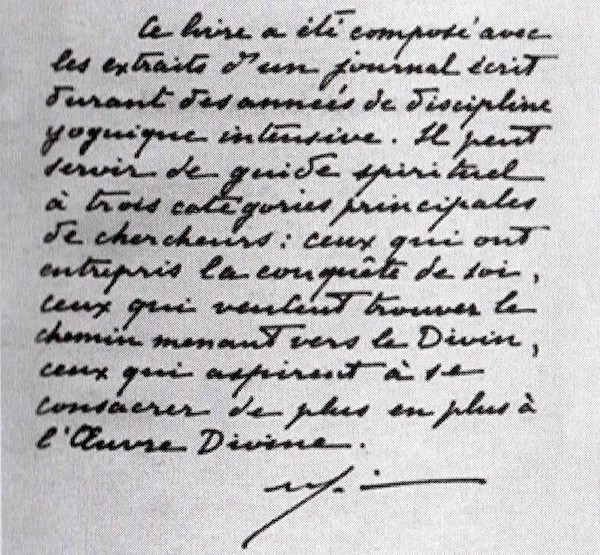 Ce livre a été composé avec
les extraits d'un journal écrit
durant des années de discipline
yoguique intensive. Il peut
servir de guide spirituel
à trois catégories principales
de chercheurs : ceux qui ont
entrepris la conquête de soi,
ceux qui veulent trouver le
chemin menant vers le Divin,
ceux qui aspirent à se
consacrer de plus en plus à
l'Œuvre Divine.